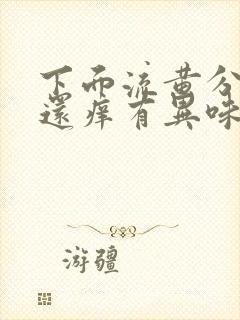 下而流黄分
還痒有異味
游疆